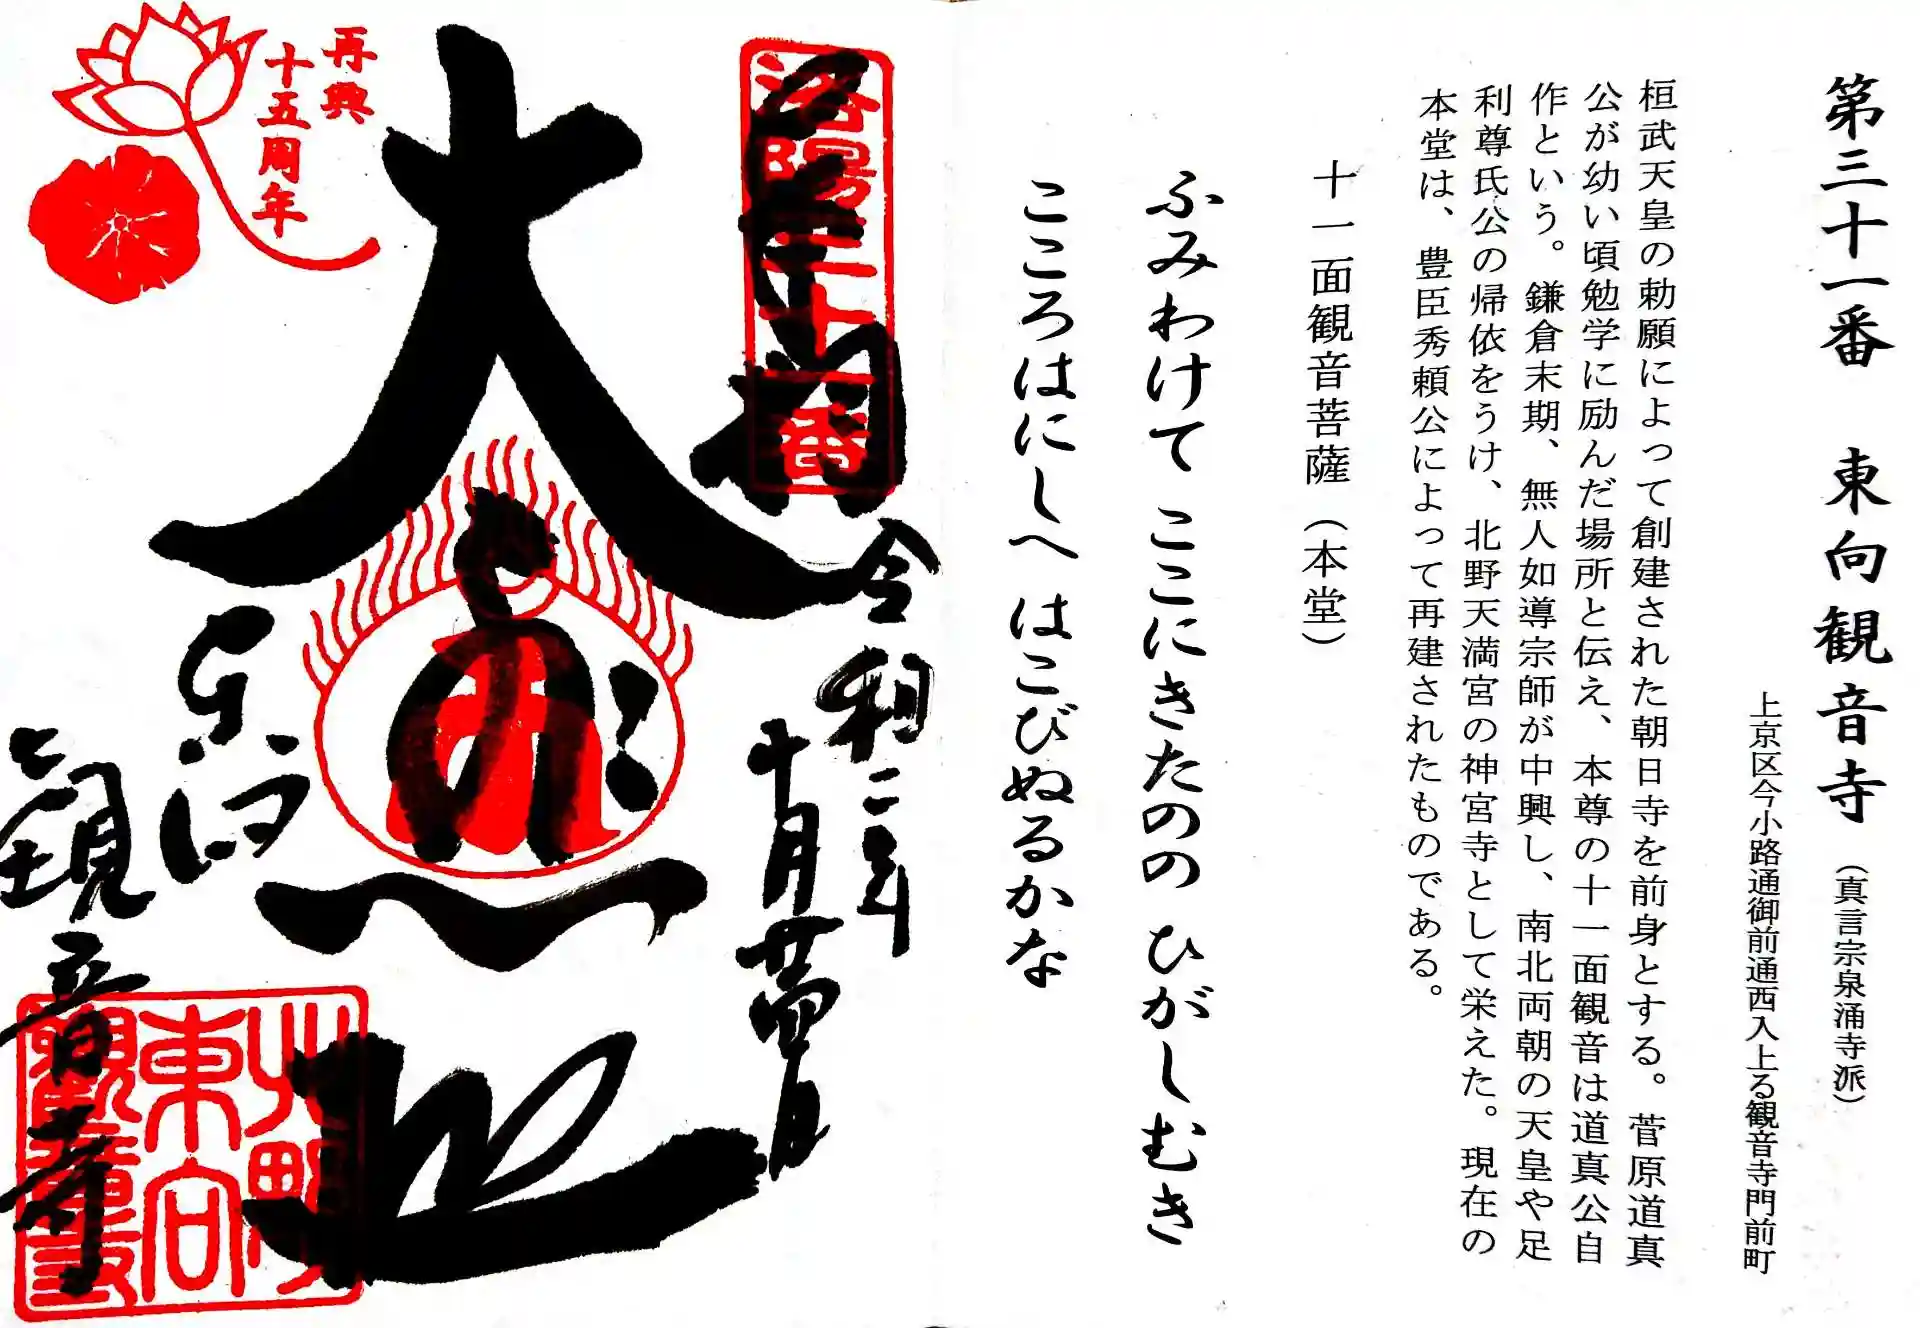 第三十一番　東向観音寺（真言宗泉涌寺派）
上京区今小路通御前通西入上る観音寺門前町
桓武天皇の勅願によって創建された朝日寺を前身とする。菅原道真
公が幼い頃勉学に励んだ場所と伝え、本尊の十一面観音は道真公自
作という。鎌倉末期、無人如導宗師が中興し、南北両朝の天皇や足
利尊氏公の帰依をうけ、北野天満宮の神宮寺として栄えた。現在の
本堂は、豊臣秀頼公によって再建されたものである。
十一面観音菩薩（本堂）
ふみわけて ここにきたのの ひがしむき
こころはにしへ はこびぬるかな
洛陽三十一番
奉拝
令和二年
十月
大悲
東向
観音寺
再興
十五周年
北野
東向
観音寺